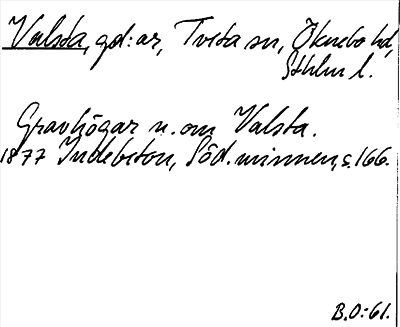 Valsta, gd:ar, Tveta sn, Öknebo hd,
Sthlm l.
Gravhögar n. om Valsta.
1877 Indebetou, Söd. minnen, s. 166.
B.O:61.